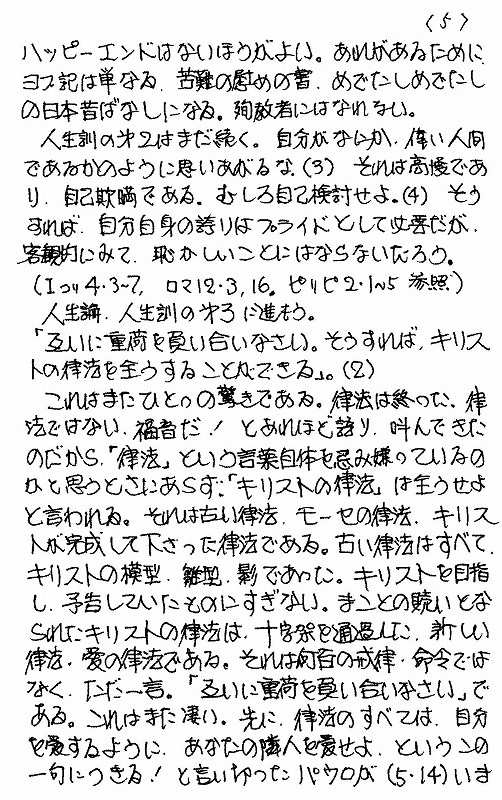 〈5〉
ハッピーエンドはないほうがよい。あれがあるために
ヨブ記は単なる、苦難の慰めの書、めでたしめでたし
の日本昔ばなしになる。殉教者にはなれない。
人生訓の才2はまだ続く。自分がなにか、偉い人間
であるかのように思いあがるな(3) それは高慢であ
り、自己欺瞞である。むしろ自己検討せよ。(4) そう
すれば、自分自身の誇りはプライドとして必要だが、
客観的にみて、恥かしいことにはならないだろう。
(Iコリ4・3~7, ロマ12・3,16。ピリピ2・1~5 参照)
人生論、人生訓の才3に進もう。
「互いに重荷を負い合いなさい。そうすれば、キリス
トの律法を全うすることができる」。(2)
これはまたひとつの驚きである。律法は終った、律
法ではない、福音だ! とあれほど語り、叫んできた
のだから、「律法」という言葉自体を忌み嫌っているの
かと思うときにあらず、「キリストの律法」は全うせよ
と言われる。それは古い律法、モーセの律法、キリス
トが完成して下さった律法である。古い律法はすべて、
キリストの模型、雛型、影であった。キリストを目指
し、予告していたものにすぎない。まことの贖いとな
られたキリストの律法は、十字架を通過した、新しい
律法・愛の律法である。それは何百の戒律・命令では
なく、ただ一言。「互いに重荷を負い合いなさい」で
ある。これはまた凄い。先に、律法のすべては、自分
を愛するように、あなたの隣人を愛せよ、というこの
一句につきる! と言い切ったパウロが(5・14)いま